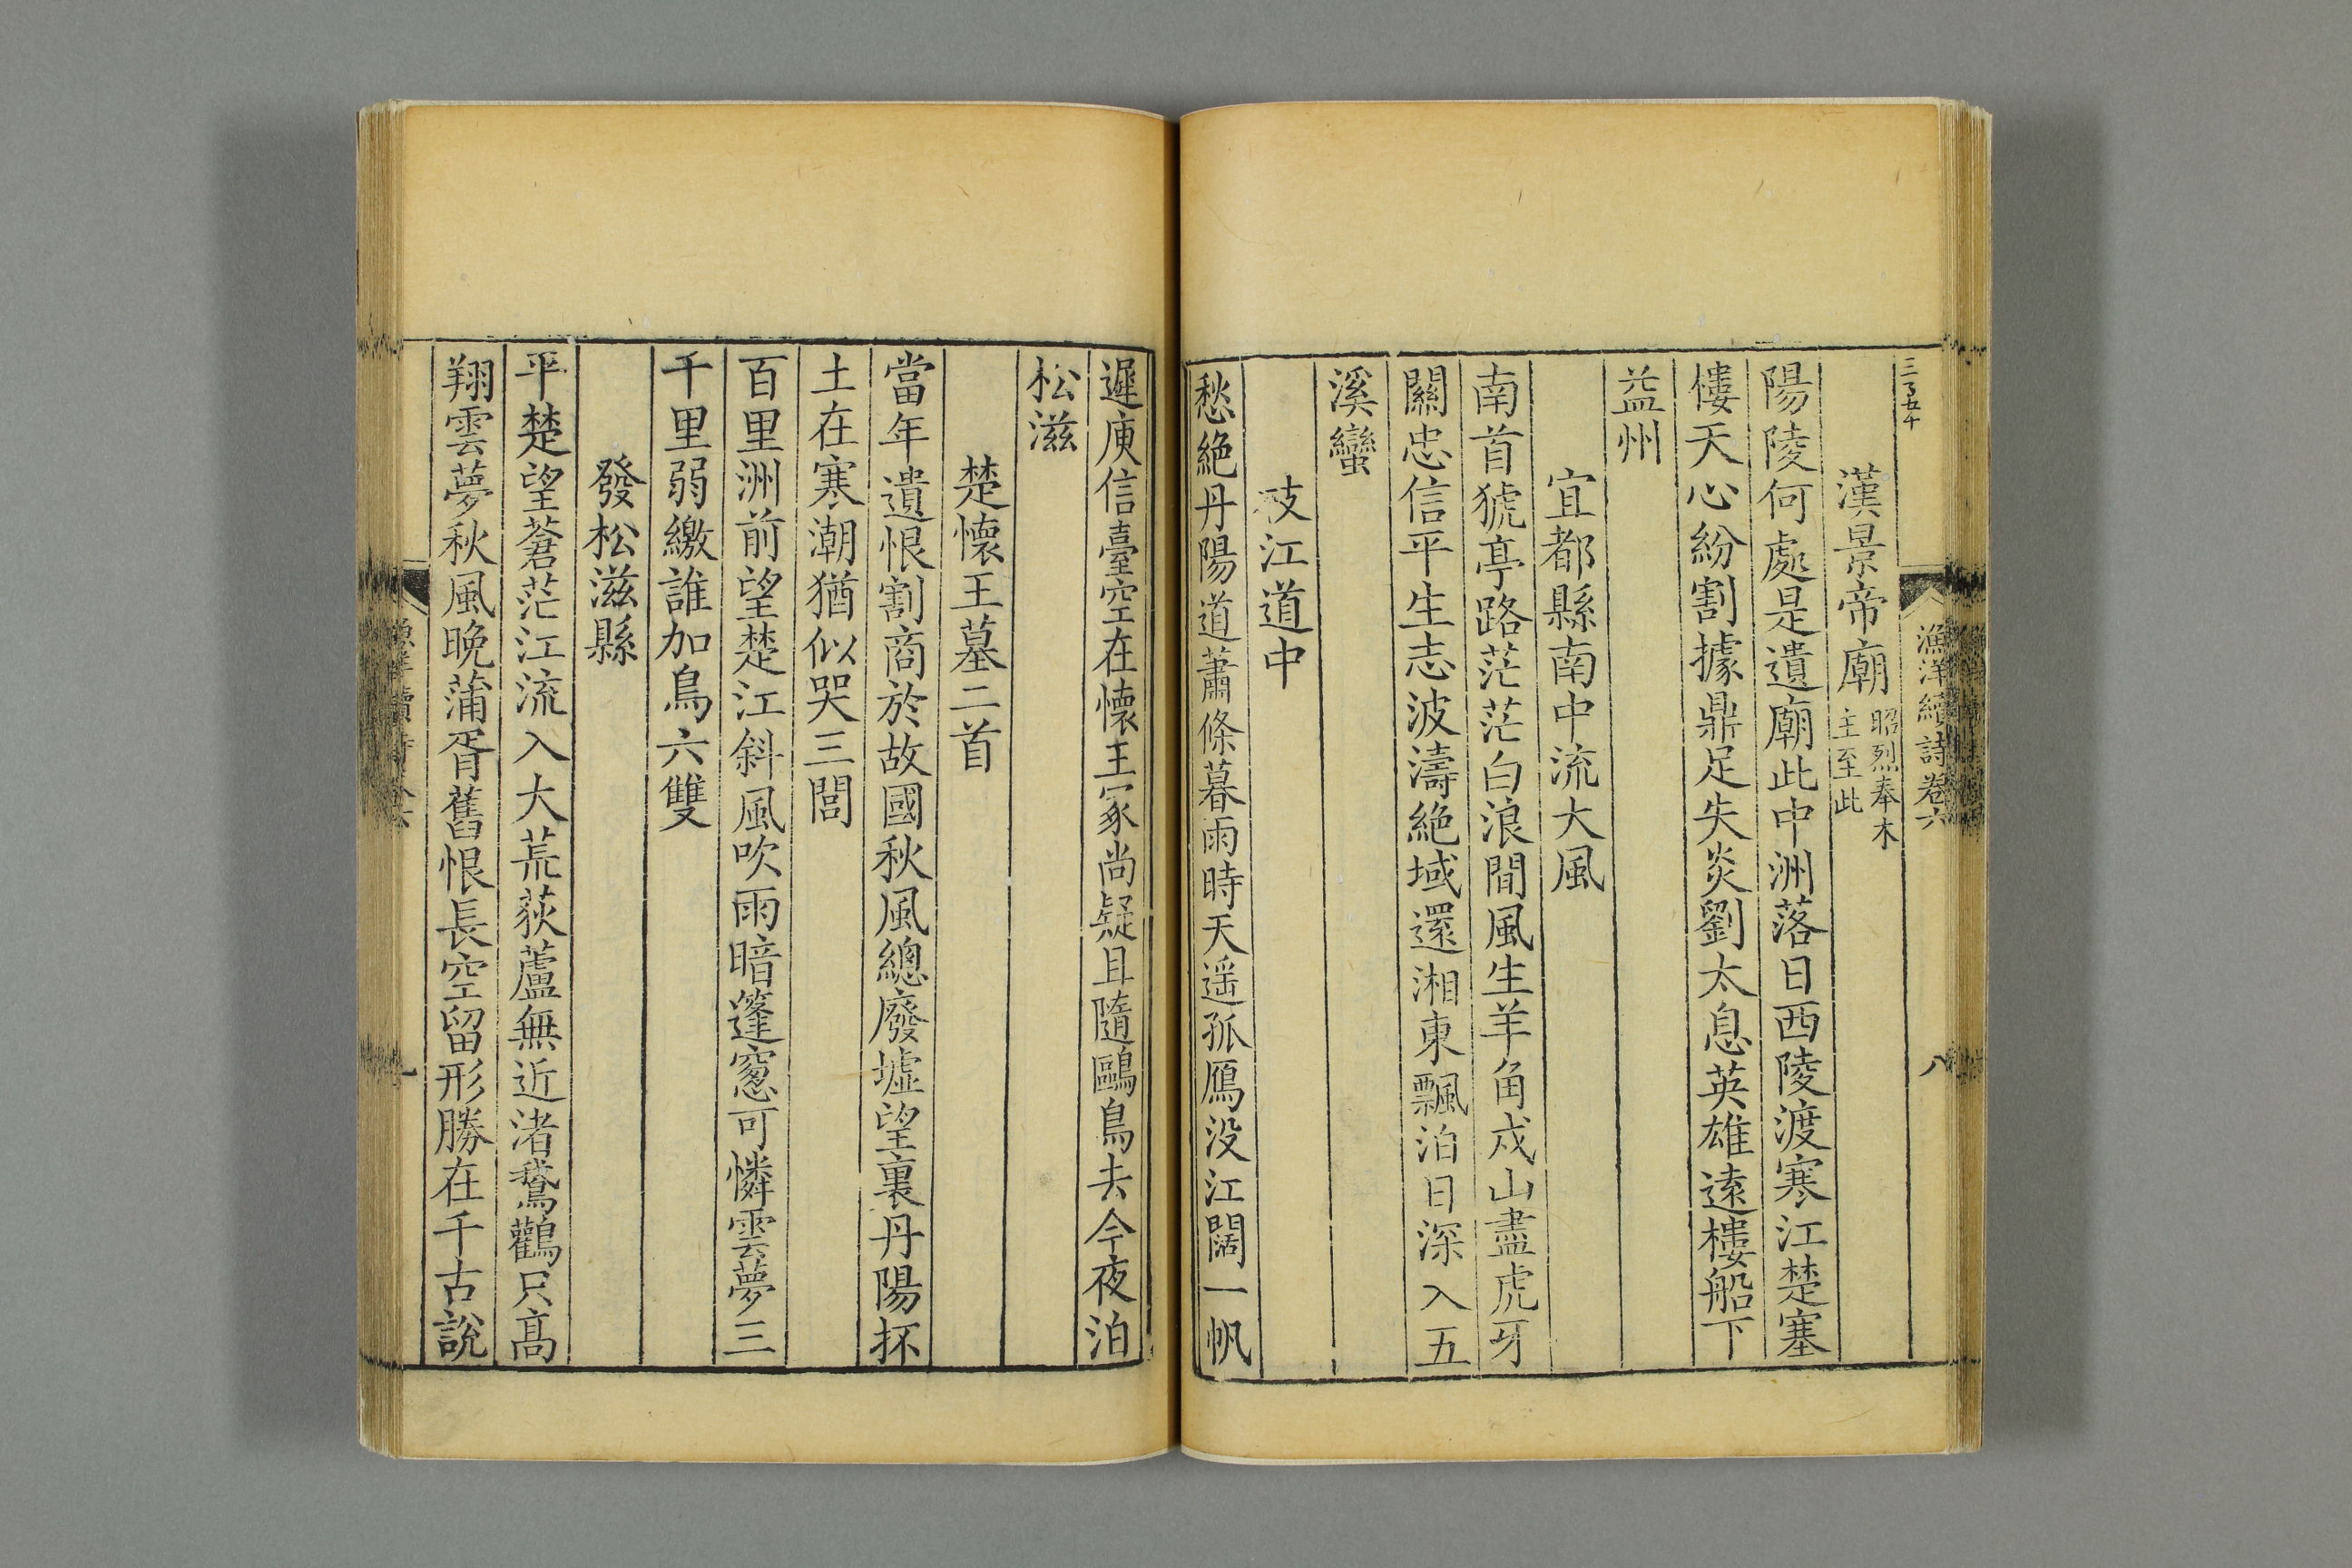 漁洋續詩卷六
八
漢景帝廟 昭烈奉木主至此
陽陵何處是遺廟此中洲落日西陵渡寒江楚塞
僂天心紛割據鼎足失炎劉太息英雄遠樓船下
益州
宜都縣南中流大風
南首猇亭路茫茫白浪間風生羊角戍山盡虎牙
關忠信平生志波濤絕域還湘東飄泊日深入五
溪蠻
枝江道中
愁絕丹陽道蕭條暮雨時天遥孤鴈没江闊一帆
遲庾信臺空在懷王冢尚疑且隨鷗鳥去今夜泊
松滋
楚懷王墓二首
當年遺恨割商於故國秋風總廢墟望裏丹陽抔
土在寒潮猶似哭三閭
百里洲前望楚江斜風吹雨暗篷窻可憐雲夢三
千里弱繳誰加鳥六雙
發松滋縣
平楚望蒼茫江流入大荒荻蘆無近渚鵞鸛只高
翔雲夢秋風晚蒲胥舊恨長空留形勝在千古說